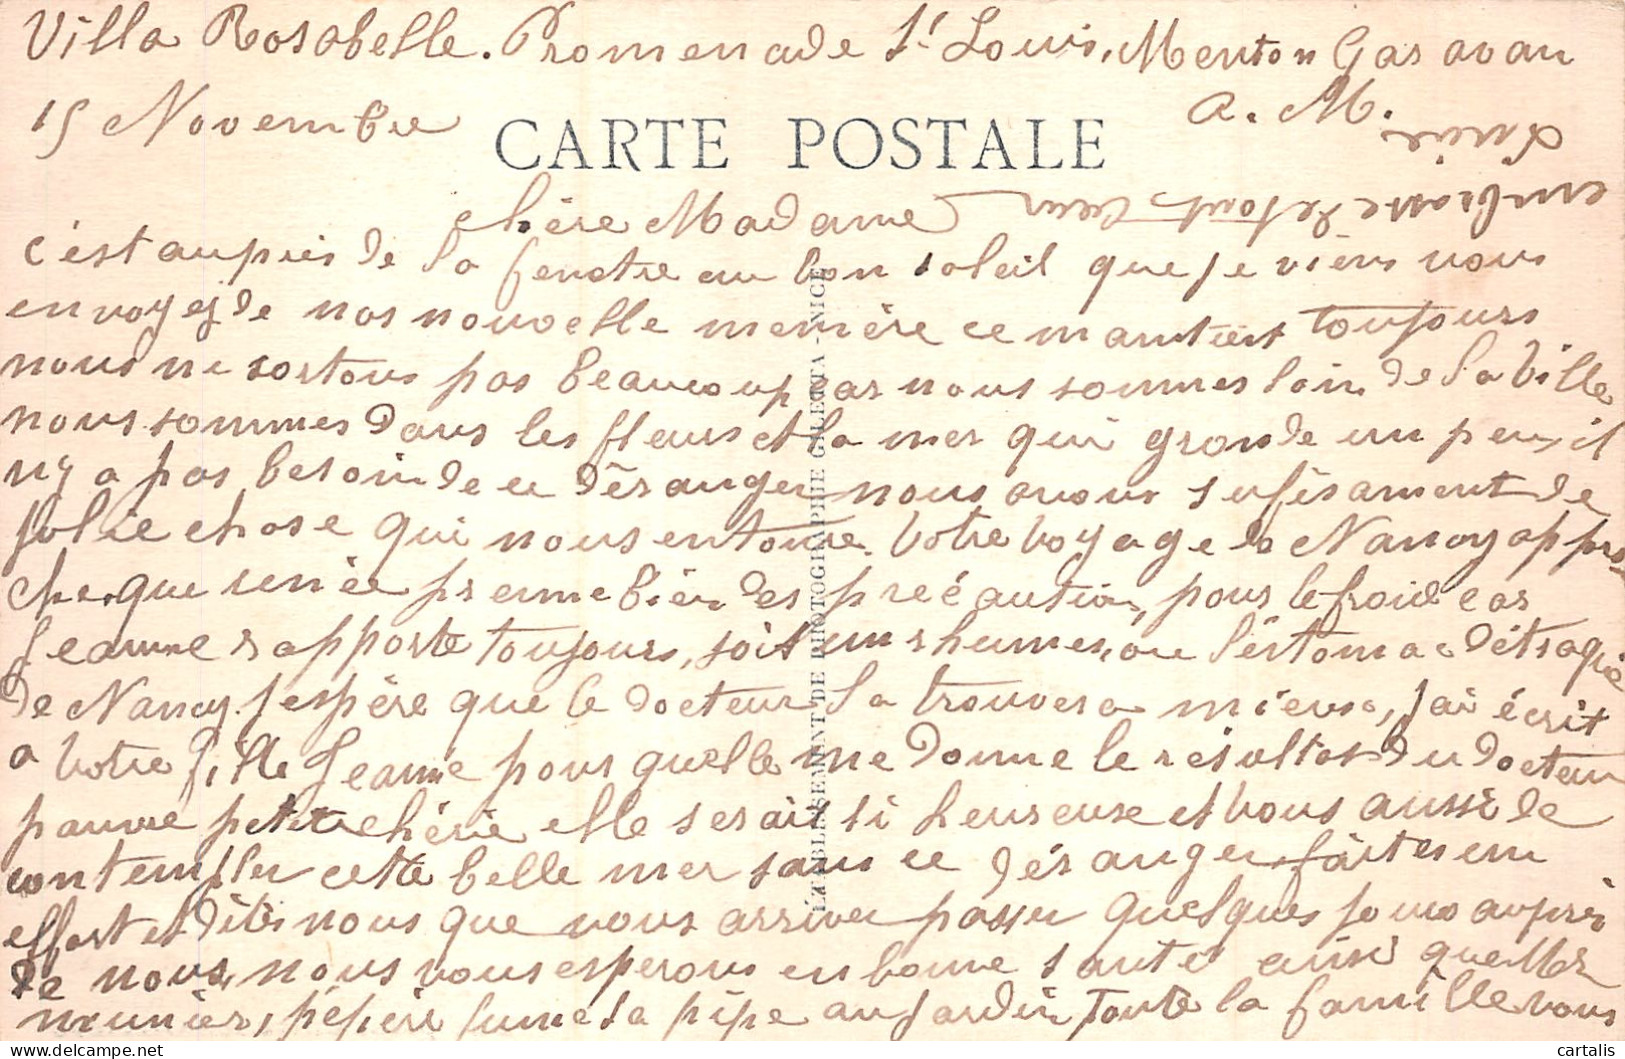 Villa Rosabelle. Promenade St Louis. Menton Garavan
A. M.
15 Novembre
CARTE POSTALE
chère Madame
c'est auprès de la fenetre au bon soleil que je viens vous
envoyez de nos nouvelle memère ce maintient toujours
nous ne sortons pas beaucoup car nous sommes loin de la Ville
nous sommes dans les fleurs et la mer qui gronde un peu, il
n'y a pas besoin de ce déranger nous avons sufisament de
jolie chose qui nous entoure. Votre voyage a Nancy appro-
che, que renée prenne bien des précaution, pour le froid car
Jeanne rapporte toujours, soit un rhume, ou l'éstomac détraqué
de Nancy. J'espère que le docteur la trouvera mieux, j'ai écrit
a votre fille Jeanne pour quelle me donne le résultat du docteur
pauvre petite chérie elle serait si heureuse et vous aussi de
contempler cette belle mer sans ce déranger, faites un
effort et dites nous que vous arriver passer quelques jours auprès
de nous, nous vous esperons en bonne santé ainsi que Mr
meunier, pépère fume sa pipe au jardin, toute la famille vous
embrasse de tout cœur
Lucie
ETABLISSEMENT DE PHOTOGRAPHIE GALETTA - NICE
cartalis